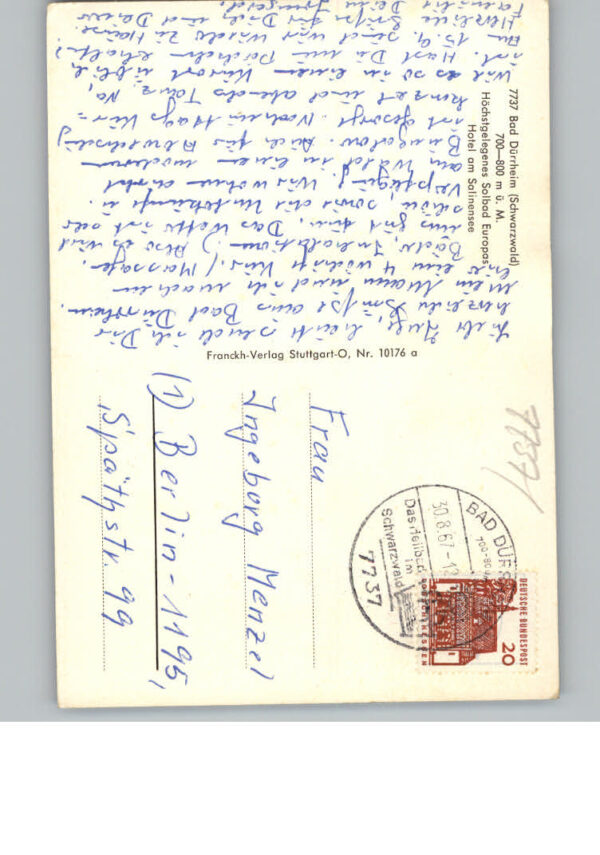 7737 Bad Dürrheim (Schwarzwald)
700—800 m ü. M.
Höchstgelegenes Solbad Europas
Hotel am Salinensee
Liebe Inge, heute sende ich Dir
herzliche Grüße aus Bad Dürrheim.
Mein Mann und ich machen
hier eine 4 wöchige Kur. (Massage,
Bäder, Inhalation.) Also es wird
uns gut tun. Das Wetter ist sehr
schön, sowie die Unterkunft u.
Verpflegung. Wir wohnen direkt
am Wald in einem modernen
Bungalow. Auch für Abwechslung
ist gesorgt. Nachmittags Kur=
konzert und abends Tanz. Na,
wie es so in einem Kurort üblich
ist. Hast Du mein Päckchen erhalten?
Am 15.9. sind wir wieder zu Hause.
Herzliche Grüße für Dich und Deine
Familie Deine
Franckh-Verlag Stuttgart-O, Nr. 10176 a
Frau
Ingeborg Menzel
(1) Berlin-1195,
Späthstr. 99
7737/
BAD DÜRRHEIM
700-800
30.8.67-12
Das Heilbad
im
Schwarzwald
7737
DEUTSCHE BUNDESPOST
20